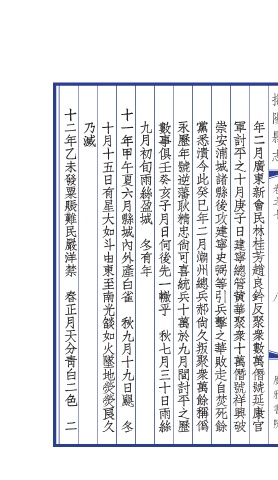 揭陽縣志
年二月廣東新會民林桂芳趙良鈐反聚衆數萬僭號延康官
軍討平之十月庚子日建寧總管黄華聚衆十萬僭號祥興破
崇安浦城諸縣後攻建寧史弼等引兵擊之華敗走自焚死餘
黨悉潰今此癸巳年二月潮州總兵郝尙久叛聚衆萬餘稱僞
永歷年號逆藩耿精忠尙可喜統兵十萬於九月間討平之歷
數事俱壬癸亥子月日何後先一轍乎　秋七月三十日雨絲
九月初旬雨絲盈城　冬有年
十一年甲午夏六月縣城內外產白雀　秋九月十九日颶　冬
十月十五日有星大如斗由東至南光燄如火墜地熒熒良久
乃滅
十二年乙未發粟賑難民嚴洋禁　春正月天分靑白二色　二